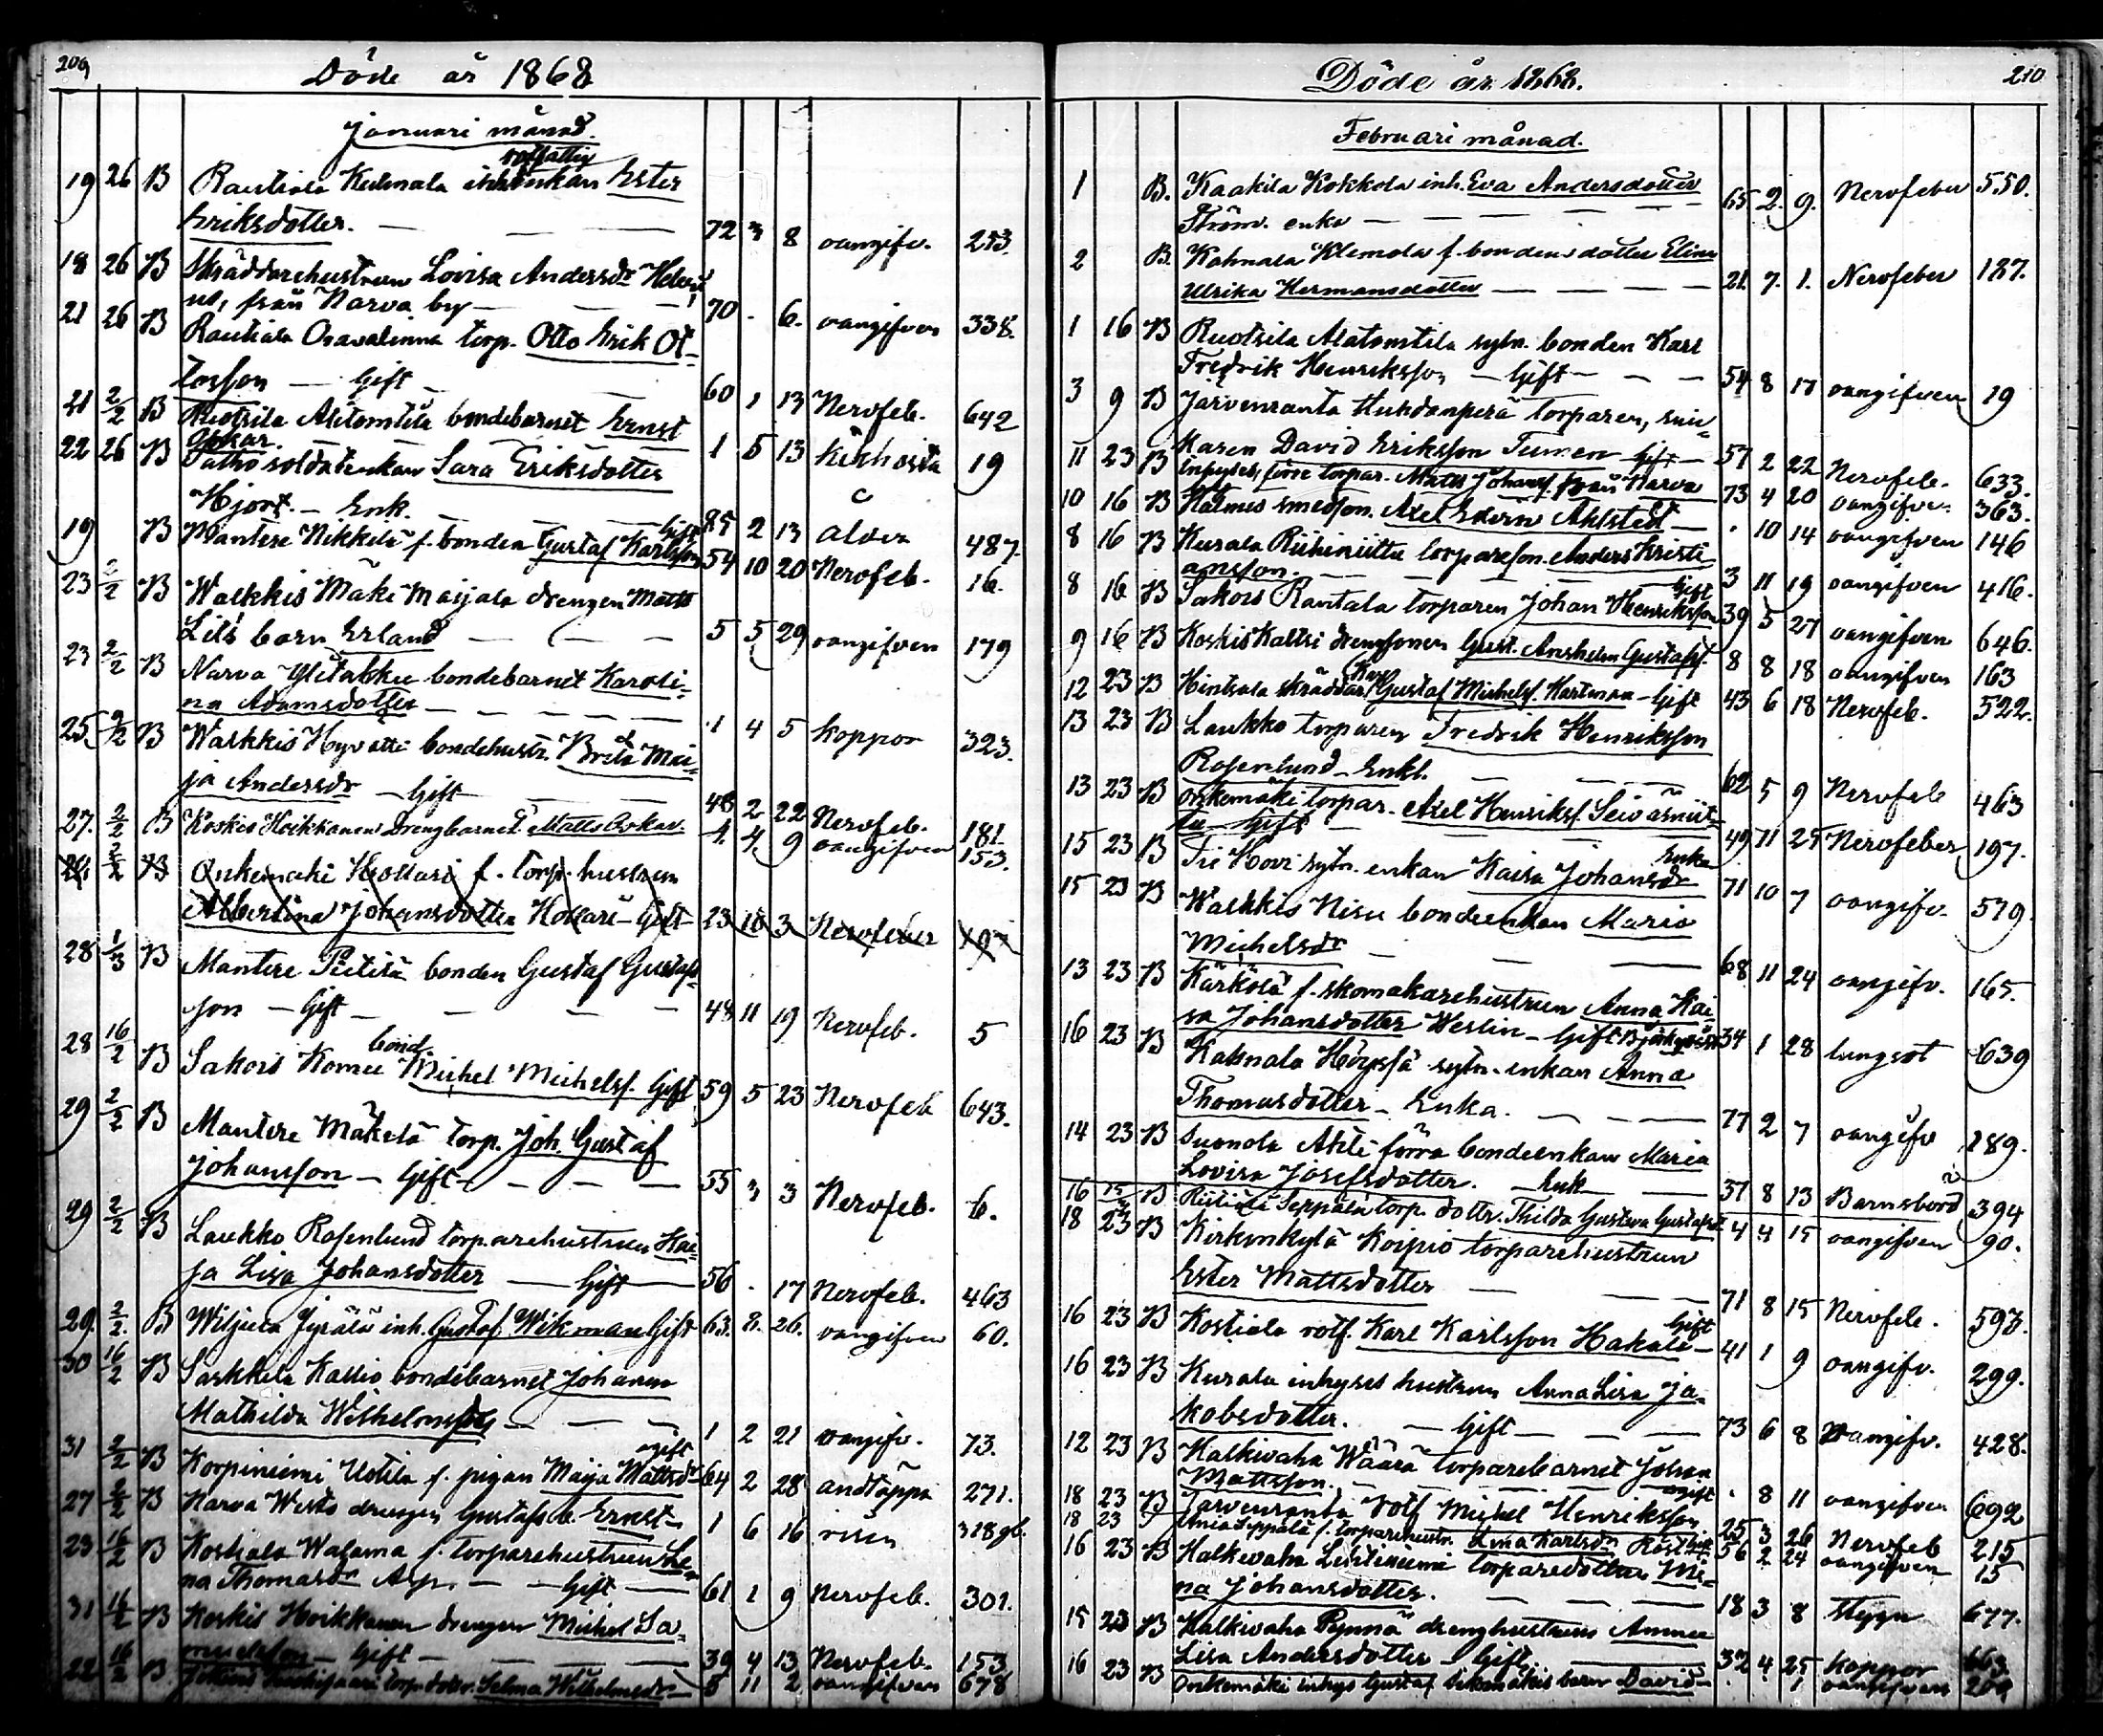 209
Döde år 1868
Januari månad.
rotfattig
19 26 B Rautiala Kulmala enkan Ester
Eriksdotter. — — 72 3 8 oangifv. 253.
18 26 B Skräddarehustrun Lovisa Andersdr
från Narva by — — 70 . 6. oangifven 338.
21 26 B Rautiala Osavalinna torp. Otto Erik Ot-
tosson — Gift — 60 1 13 Nervfeb. 642
21 2/2 B Ruotsila Alitomtila bondebarnet Ernst
Oskar. 1 5 13 kikhosta 19
22 26 B soldatenkan Sara Eriksdotter
Hjort. — Enk. — 85 2 13 ålder 487
19 B Mantere Nikkilä f. bonden Gustaf Karlsson Gift 54 10 20 Nervfeb. 16.
23 2/2 B Walkkis Mäki Maijala drengen Matts
barn Erland — — — 5 5 29 oangifven 179
23 2/2 B Narva Ylitakku bondebarnet Karoli-
na Adamsdotter — — — 1 4 5 koppor 323.
25 2/2 B Walkkis Hyvätti bondehustr. Brita Mai-
ja Andersdr — Gift — 48 2 22 Nervfeb. 181.
27. 2/2 B Koskis Hoikkanen drengbarnet Matts Oskar. 1. 4. 9 oangifven 153.
2/2 B Onkemäki Hollari f. torp. hustrun
Albertina Johansdotter Hollari — Gift 23 10 3 Nervfeber 197
28 1/3 B Mantere Pietilä bonden Gustaf Gustafs-
son — Gift — — — 48 11 19 Nervfeb. 5
28 16/2 B Sakois Komu bond. Michel Michelsf. Gift 59 5 23 Nervfeb 643.
29 2/2 B Mantere Mäkelä torp. Joh. Gustaf
Johansson — Gift — — — 55 3 3 Nervfeb. 6.
29 2/2 B Laukko Rosenlund torparehustrun Kai-
ja Lisa Johansdotter — Gift — 56 . 17 Nervfeb. 463
29. 2/2. B Wiljula Jyrälä inh. Gustaf Wikman Gift 63. 8. 26. oangifven 60.
30 16/2 B Sarkkila Kallio bondebarnet Johanna
Mathilda Wilhelmsdr — — — 1 2 21 oangifv. 73.
31 2/2 B Korpiniemi Uotila f. pigan Maija Mattsdr ogift 64 2 28 andtäppa 271.
27 2/2 B Narva Westo drengen Gustafs b. Ernst — 1 6 16 risen 318 gb.
23 16/2 B Kostiala Walama f. torparehustrun Le-
na Thomasdr Asp. — — Gift — 61 1 9 Nervfeb. 301.
31 16/2 B Koskis Hoikkanen drengen Michel Sa-
muelsson — Gift — 39 4 13 Nervfeb. 153
22 16/2 B. torp. dottr. Selma Wilhelmsdr — 5 11 2 oangifven 678
210
Döde år 1868.
Februari månad.
1 B. Kaakila Kokkola inh. Eva Andersdotter
Ström. enka — — — — 65 2. 9. Nervfeber 550.
2 B. Kahnala Klemola f. bondens dotter Elina
Ulrika Hermansdotter — — — — 21. 7. 1. Nervfeber 187.
1 16 B Ruotsila Alatomtila sytn. bonden Karl
Fredrik Henriksson — Gift — — 54 8 17 oangifven 19
3 9 B Järvenranta Huhdanperä torparen, snic-
karen David Eriksson Tumen Gift — 57 2 22 Nervfeb. 633.
11 23 B Inhyses, förre torpar. Matts Johansf. från Narva 73 4 20 oangifven 363.
10 16 B Halmes smedson. Axel Edvin Ahlsted — . 10 14 oangifven 146
8 16 B Kurala Riihiniittu torpareson. Anders Kristi-
ansson. — — — 3 11 19 oangifven 416.
8 16 B Sakois Rantala torparen Johan Henriksson Gift 39 5 27 oangifven 646.
9 16 B Koskis Kaltsi drengsonen Gust. Anshelm Gustafsf. 8 8 18 oangifven 163
12 23 B Hintsala skräddar. Gustaf Michelsf. Hartman — Gift 43 6 18 Nervfeb. 522.
13 23 B Laukko torparen Fredrik Henriksson
Rosenlund — Enkl. — — 62 5 9 Nervfeb 463
13 23 B Onkemäki torpar. Axel Henriksf. Seiväsniit-
tu Gift — — 49 11 25 Nervfeber 197.
15 23 B Tie Hovi sytn. enkan Kaisa Johansdr Enka 71 10 7 oangifv. 579.
15 23 B Walkkis Nisu bondeenkan Maria
Michelsdr — — 68 11 24 oangifv. 165.
13 23 B Kärkölä f. skomakarehustrun Anna Kai-
sa Johansdotter Weslin — Gift 34 1 28 lungsot 639
16 23 B Kahnala Höyssä sytn. enkan Anna
Thomasdotter — Enka. — — 77 2 7 oangifv 189.
14 23 B Suonola Ahti förra bondeenkan Maria
Lovisa Josefsdotter. — Enk — 37 8 13 Barnsbörd 394
16 15 B Seppälä torp. dottr. Thilda Gustava Gustafsd. 4 4 15 oangifven 90.
18 23 B Kirkonkylä Koipio torparehustrun
Ester Mattsdotter — — 71 8 15 Nervfeb. 593.
16 23 B Kostiala rotf. Karl Karlsson Hakala — Gift 41 1 9 oangifv. 299.
16 23 B Kurala inhyses hustrun Anna Lisa Ja-
kobsdotter. — Gift — — 73 6 8 oangifv. 428.
12 23 B Halkivaha Wäärä torparebarnet Johan
Mattsson. — — — . 8 11 oangifven 692
18 23 B Järvenranta rotf. Michel Henriksson ogift 25 3 26 Nervfeb 215
18 23 Seppälä f. torparehustr. Karlsdr 56 2 24 oangifven 15
16 23 B Halkivaha Lehtiniemi torparedottern Mi-
na Johansdotter. — — — 18 3 8 Stygn 677.
15 23 B Halkivaha Pynnä drenghustrun Anna
Lisa Andersdotter — Gift — 32 4 25 koppor 663
16 23 B Onkemäki inhys Gustaf barn David — . . 1 oangifven